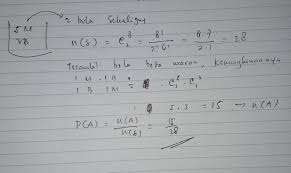 5M
3B
2 bola Sekaligus
n(S) = C₂⁸ = 8! / 2! 6! = 8.7 / 2.1 = 28
Terambil bola beda warna, kemungkinannya
1 M 1 B =
1 B 1 M = C₁⁵ . C₁³
5.3 = 15 → n(A)
P(A) = n(A) / n(S) = 15 / 28